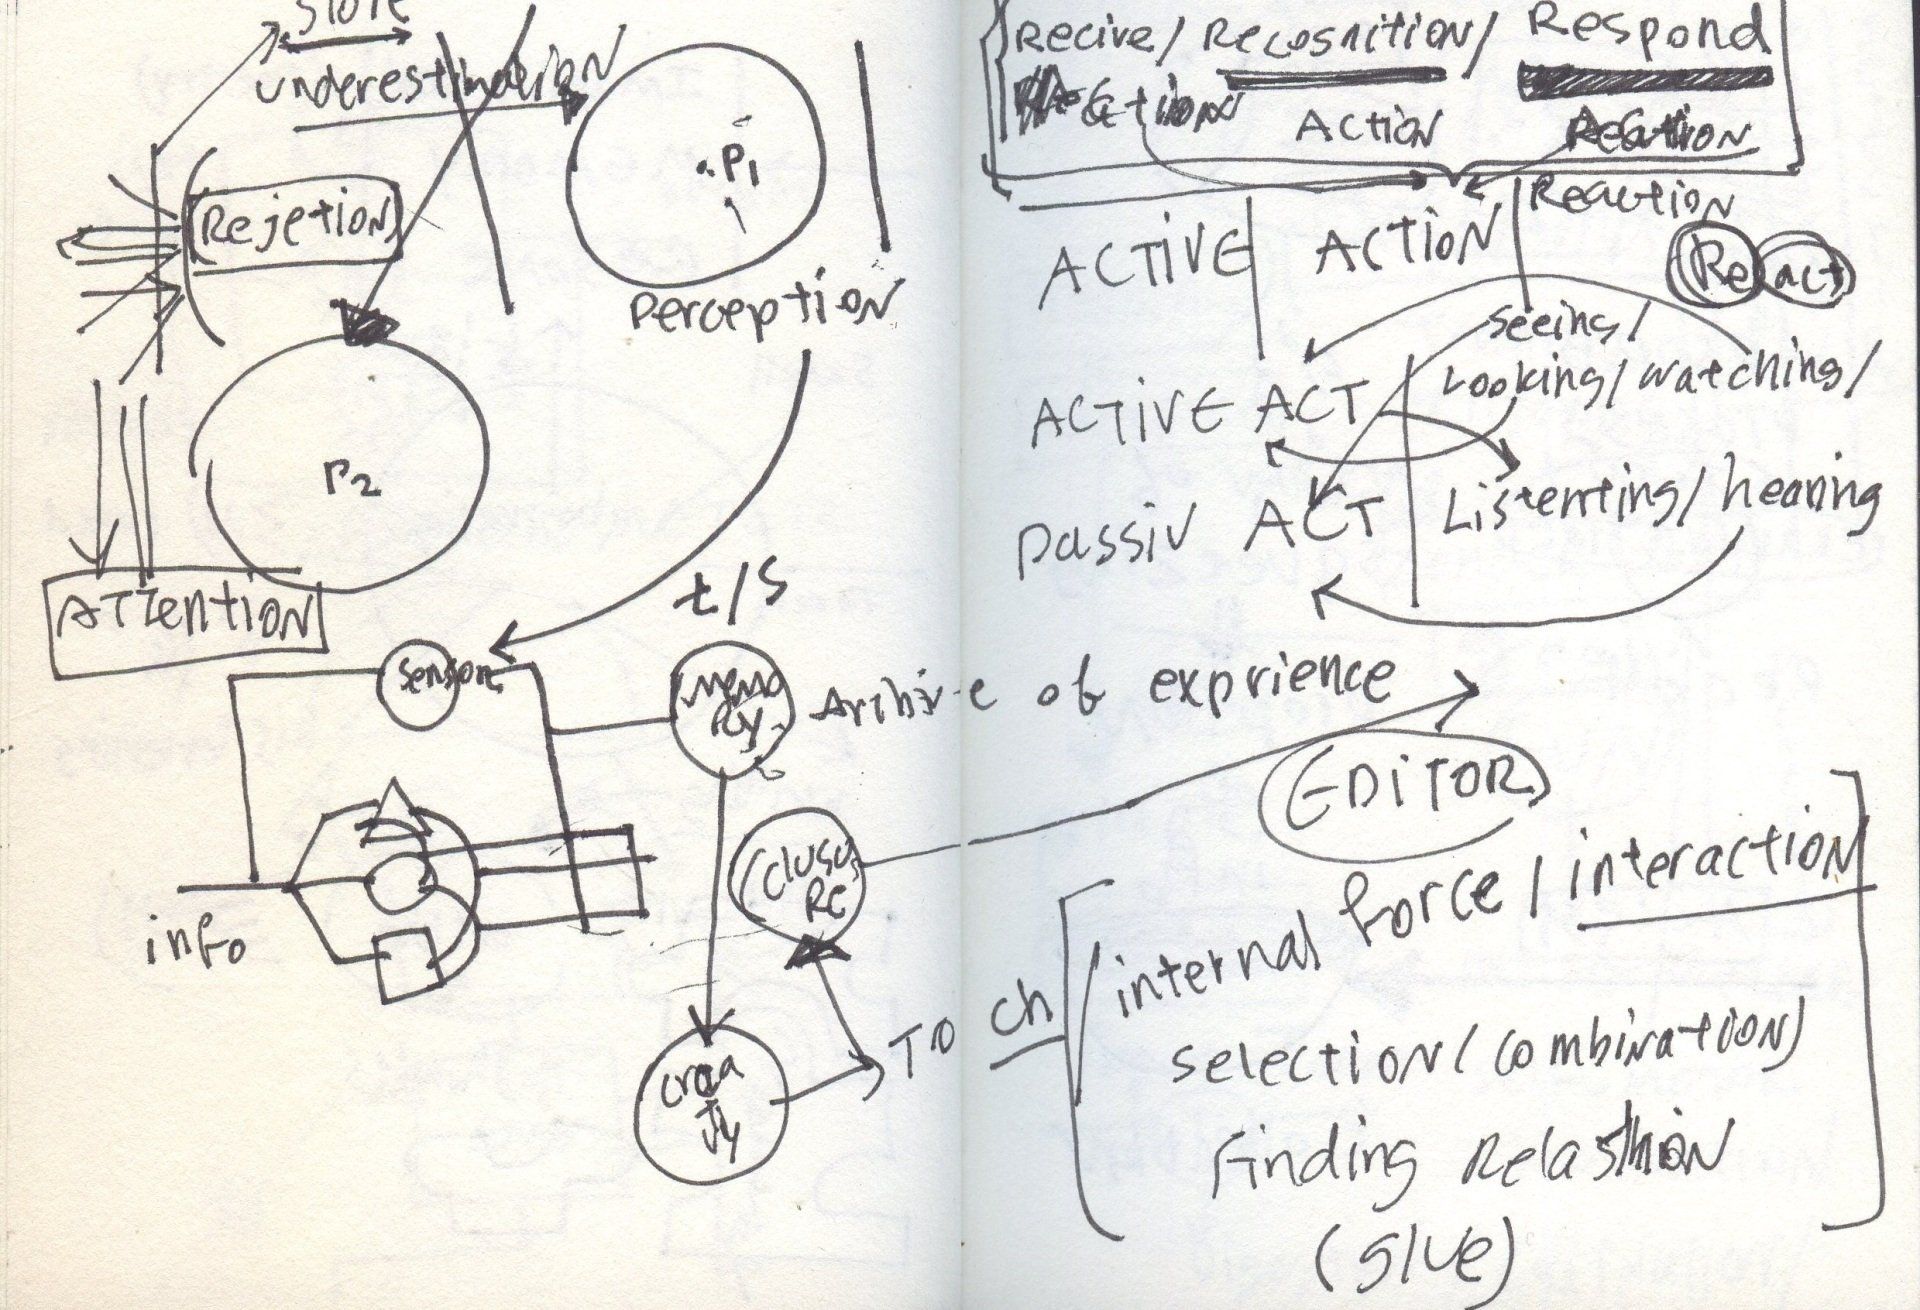 underestimdion
P1
Rejetion
Perception
P2
ATTention
t/s
Sensore
memo
Ry
Arhive of exprience
info
Closu
Re
Crea
tity
To ch
Recive/ Recognition/ Respond
Action
Reaction
Reaction
ACTIVE ACTION
Re act
Seeing/
Looking/ watching/
ACTIVE ACT
Listenting/ hearing
passiv ACT
EDITOR
internal force / interaction
selection/ combination/
Finding Relashion